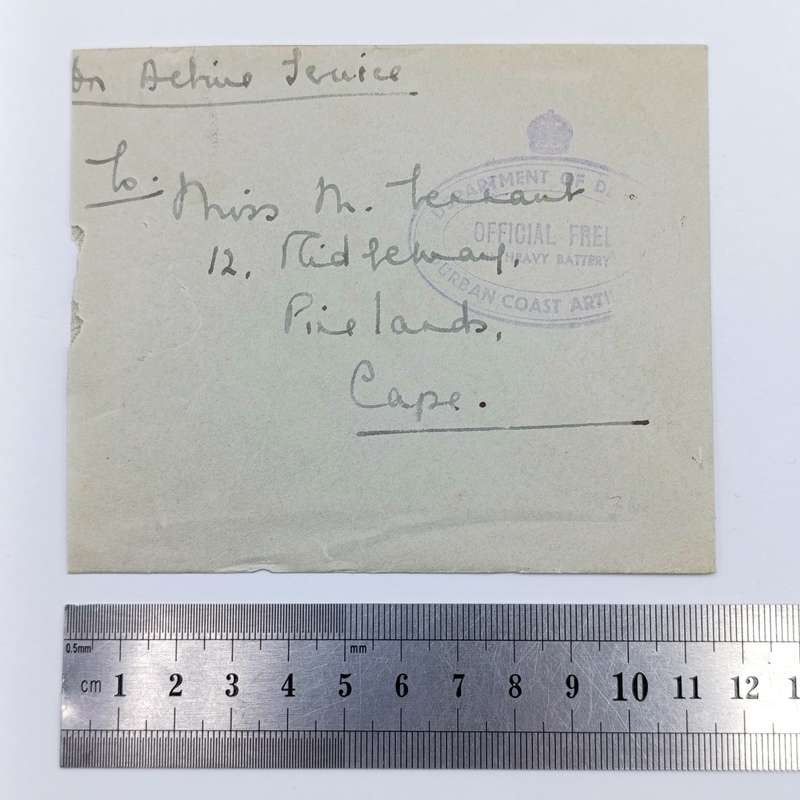 On Active Service
To. Miss M. Tennant
12, Ridgeway,
Pinelands,
Cape.
DEPARTMENT OF DE
OFFICIAL FREE
HEAVY BATTERY
URBAN COAST ARTI
0.5mm mm
cm 1 2 3 4 5 6 7 8 9 10 11 12 1